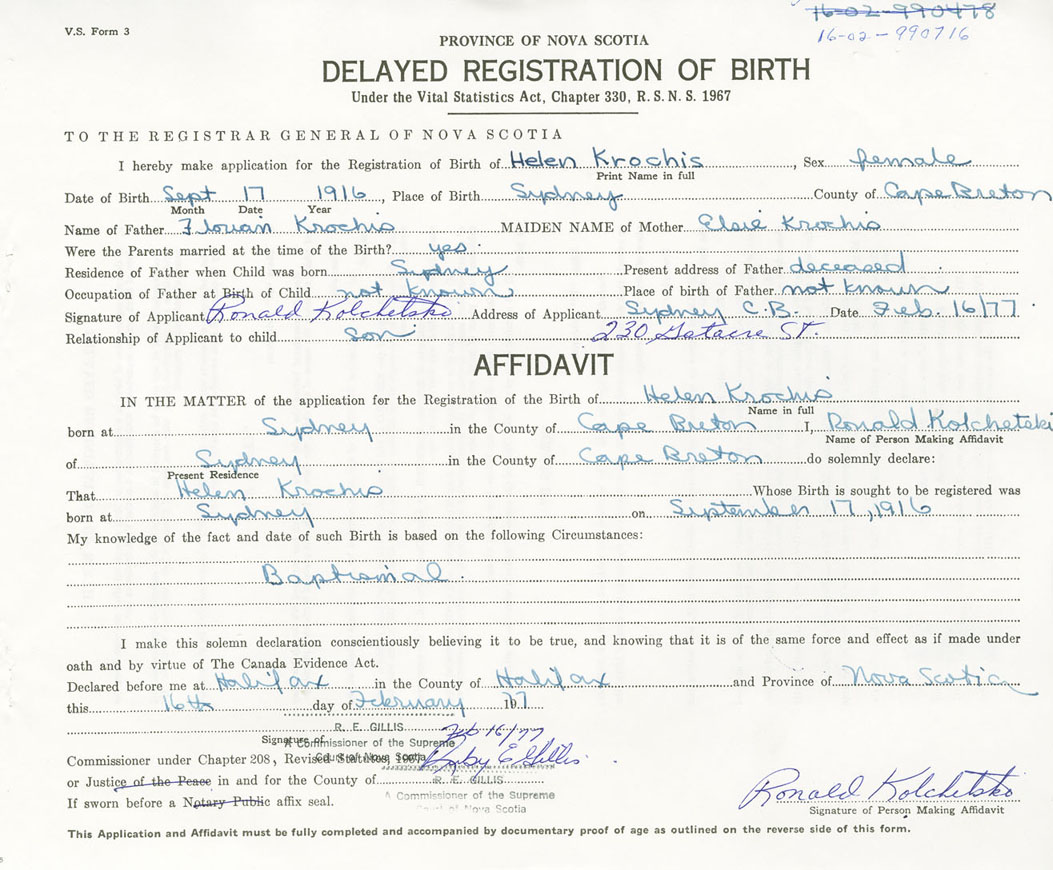 16-02-990478
V.S. Form 3
16-02-990716
PROVINCE OF NOVA SCOTIA
DELAYED REGISTRATION OF BIRTH
Under the Vital Statistics Act, Chapter 330, R. S. N. S. 1967
TO THE REGISTRAR GENERAL OF NOVA SCOTIA
I hereby make application for the Registration of Birth of Helen Krochis, Sex female
Print Name in full
Date of Birth Sept 17 1916, Place of Birth Sydney County of Cape Breton
Month Date Year
Name of Father Florian Krochis MAIDEN NAME of Mother Elsie Krochis
Were the Parents married at the time of the Birth? yes.
Residence of Father when Child was born Sydney Present address of Father deceased
Occupation of Father at Birth of Child not known Place of birth of Father not known
Signature of Applicant Ronald Kolchetski Address of Applicant Sydney C.B. Date Feb. 16/77
Relationship of Applicant to child Son 230 St.
AFFIDAVIT
IN THE MATTER of the application for the Registration of the Birth of Helen Krochis
Name in full
born at Sydney in the County of Cape Breton I, Ronald Kolchetski
Name of Person Making Affidavit
of Sydney in the County of Cape Breton do solemnly declare:
Present Residence
That Helen Krochis Whose Birth is sought to be registered was
born at Sydney on September 17, 1916
My knowledge of the fact and date of such Birth is based on the following Circumstances:
Baptismal.
I make this solemn declaration conscientiously believing it to be true, and knowing that it is of the same force and effect as if made under
oath and by virtue of The Canada Evidence Act.
Declared before me at Halifax in the County of Halifax and Province of Nova Scotia
this 16th day of February 1977
R. E. GILLIS Feb 16/77
Signature of
A Commissioner of the Supreme
Court of Nova Scotia
Commissioner under Chapter 208, Revised Statutes, 1967 E Gillis
or Justice of the Peace in and for the County of R. E. GILLIS
A Commissioner of the Supreme
Court of Nova Scotia
If sworn before a Notary Public affix seal.
Ronald Kolchetski
Signature of Person Making Affidavit
This Application and Affidavit must be fully completed and accompanied by documentary proof of age as outlined on the reverse side of this form.